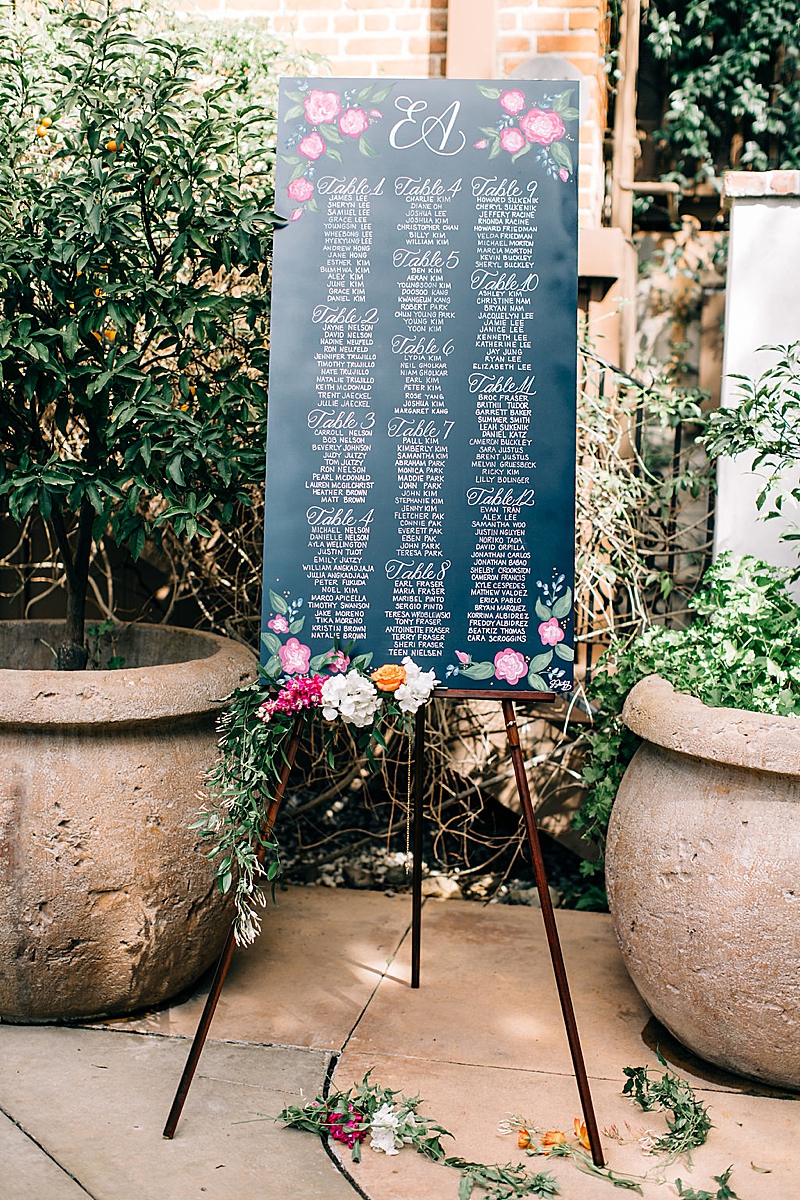 EA
Table 1
JAMES LEE
SHERYN LEE
SAMUEL LEE
GRACE LEE
YOUNGSIN LEE
WHEEBONG LEE
HYEKYUNG LEE
ANDREW HONG
JANE HONG
ESTHER KIM
BUMHWA KIM
ALEX KIM
JUNE KIM
GRACE KIM
DANIEL KIM
Table 2
JAYNE NELSON
DAVID NELSON
NADINE NEUFELD
RON NEUFELD
JENNIFER TRUJILLO
TIMOTHY TRUJILLO
NATE TRUJILLO
NATALIE TRUJILLO
KEITH MCDONALD
TRENT JAECKEL
JULIE JAECKEL
Table 3
CARROLL NELSON
BOB NELSON
BEVERLY JOHNSON
JUDY JUTZY
TOM JUTZY
RON NELSON
PEARL MCDONALD
LAUREN MCGILCHRIST
HEATHER BROWN
MATT BROWN
Table 4
MICHAEL NELSON
DANIELLE NELSON
AYLA WELLINGTON
JUSTIN TUOT
EMILY JUTZY
WILLIAM ANGKADJAJA
JULIA ANGKADJAJA
PETER FUKUDA
NOEL KIM
MARCO APICELLA
TIMOTHY SWANSON
JAKE MORENO
TIKA MORENO
KRISTIN BROWN
NATALIE BROWN
Table 4
CHARLIE KIM
DIANE OH
JOSHUA LEE
JOSHUA KIM
CHRISTOPHER CHAN
BILLY KIM
WILLIAM KIM
Table 5
BEN KIM
AERAN KIM
YOUNGSOON KIM
DOOSOO KANG
KWANGEUN KANG
ROBERT PARK
CHUN YOUNG PARK
YOUNG KIM
YOON KIM
Table 6
LYDIA KIM
NEIL GHOLKAR
NIAM GHOLKAR
EARL KIM
PETER KIM
ROSE YANG
JOSHUA KIM
MARGARET KANG
Table 7
PAUL KIM
KIMBERLY KIM
SAMANTHA KIM
ABRAHAM PARK
MONICA PARK
MADDIE PARK
JOHN PARK
JOHN KIM
STEPHANIE KIM
JENNY KIM
FLETCHER PAK
CONNIE PAK
EVERETT PAK
EBEN PAK
JOHN PARK
TERESA PARK
Table 8
EARL FRASER
MARIA FRASER
MARIBEL PINTO
SERGIO PINTO
TERESA WROBLEWSKI
TONY FRASER
ANTOINETTE FRASER
TERRY FRASER
SHERI FRASER
TEEN NIELSEN
Table 9
HOWARD SUKENIK
CHERYL SUKENIK
JEFFERY RACINE
RHONDA RACINE
HOWARD FRIEDMAN
VELDA FRIEDMAN
MICHAEL MORTON
MARCIA MORTON
KEVIN BUCKLEY
SHERYL BUCKLEY
Table 10
ASHLEY KIM
CHRISTINE NAM
BRYAN NAM
JACQUELYN LEE
JAMIE LEE
JANICE LEE
KENNETH LEE
KATHERINE LEE
JAY JUNG
RYAN LEE
ELIZABETH LEE
Table 11
BROC FRASER
BRITHII TUDOR
GARRETT BAKER
SUMMER SMITH
LEAH SUKENIK
DANIEL KATZ
CAMERON BUCKLEY
SARA JUSTUS
BRENT JUSTUS
MELVIN GRUESBECK
RICKY KIM
LILLY BOLINGER
Table 12
EVAN TRAN
ALEX LEE
SAMANTHA WOO
JUSTIN NGUYEN
NORIKO TADA
DAVID ORPILLA
JONATHAN CARLOS
JONATHAN BABAO
SHELBY CROOKSTON
CAMERON FRANCIS
KYLE CESPEDES
MATTHEW VALDEZ
ERICA PABLO
BRYAN MARQUEZ
KORRINA ALBIDREZ
FREDDY ALBIDREZ
BEATRIZ THOMAS
CARA SCROGGINS